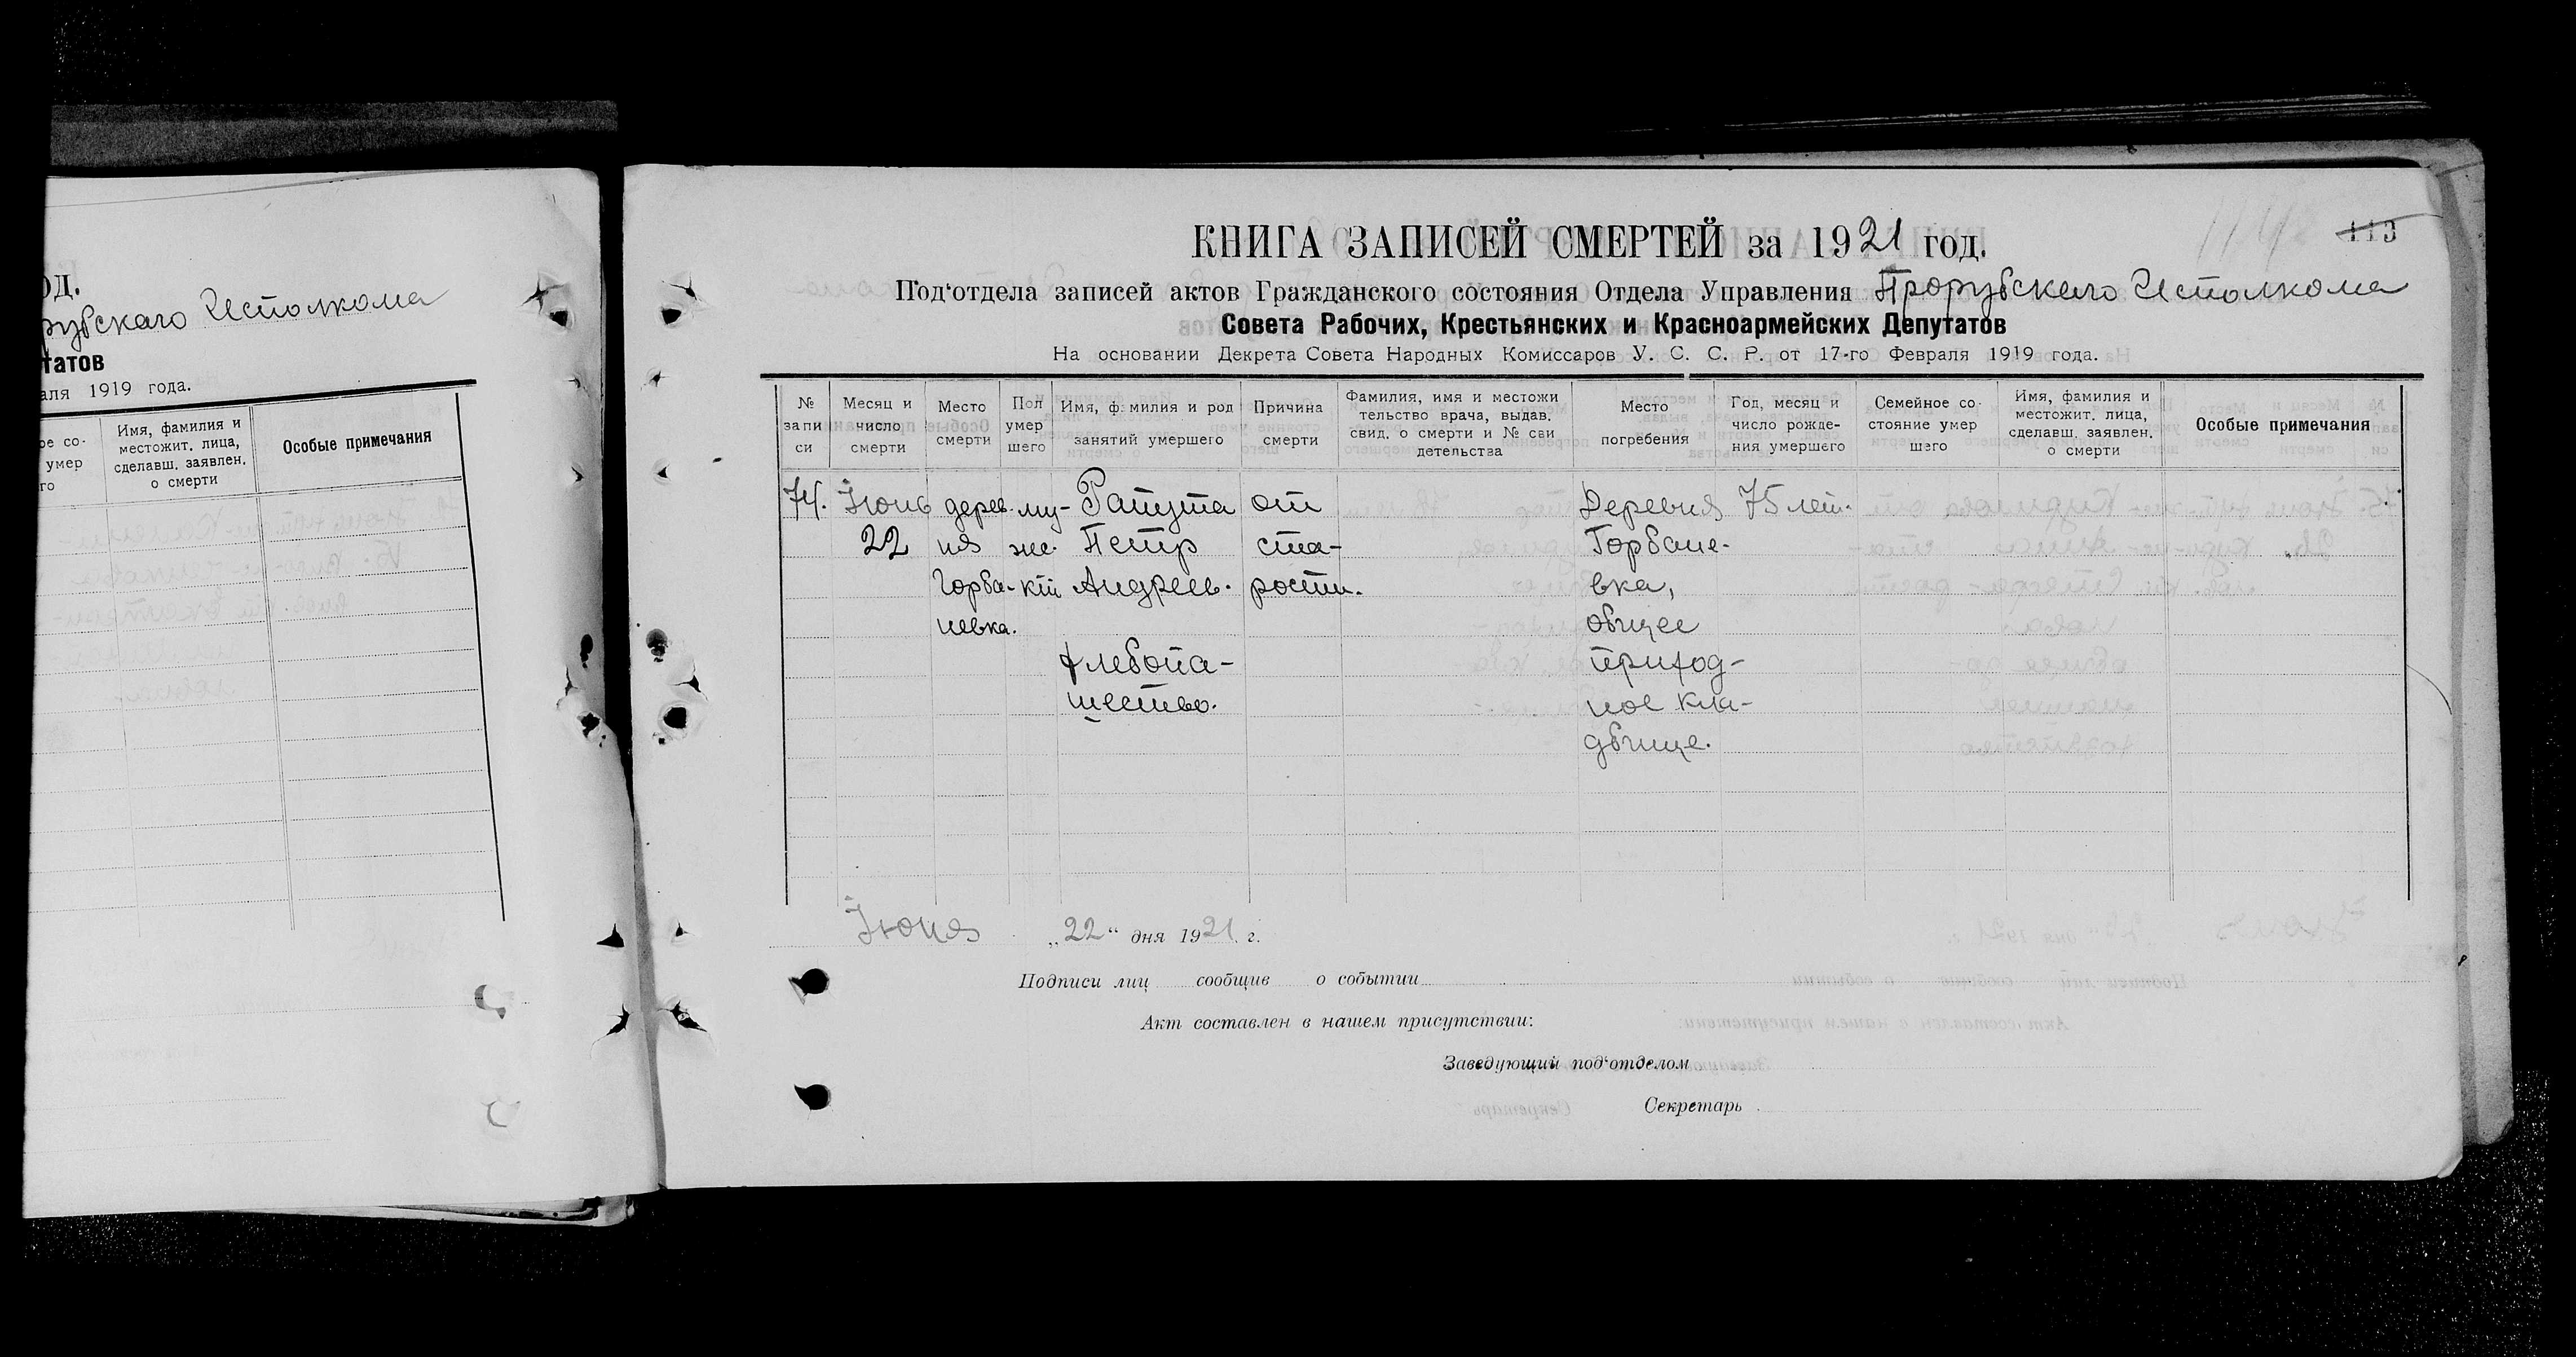 од.
рубскаго Исполкома
татов
аля 1919 года.
ое со-
умер
го
Имя, фамилия и
местожит. лица,
сделавш. заявлен.
о смерти
Особые примечания
КНИГА ЗАПИСЕЙ СМЕРТЕЙ за 1921 год.
114
113
Под'отдела записей актов Гражданского состояния Отдела Управления Прорубскаго Исполкома
Совета Рабочих, Крестьянских и Красноармейских Депутатов
На основании Декрета Совета Народных Комиссаров У. С. С. Р. от 17-го Февраля 1919 года.
№
запи
си
Месяц и
число
смерти
Место
смерти
Пол
умер
шего
Имя, фамилия и род
занятий умершего
Причина
смерти
Фамилия, имя и местожи
тельство врача, выдав.
свид. о смерти и № сви
детельства
Место
погребения
Год, месяц и
число рожде-
ния умершего
Семейное со-
стояние умер
шего
Имя, фамилия и
местожит. лица,
сделавш. заявлен.
о смерти
Особые примечания
74.
Іюнь
22
дерев-
ня
Горба-
невка.
му-
же-
кій
Рапута
Петр
Андреев.
хлебопа-
шество.
от
ста-
рости.
Деревня
Горбане-
вка,
общее
приход-
ное кла-
дбище.
75 лет.
Іюня „22“ дня 1921 г.
Подписи лиц сообщив о событии
Акт составлен в нашем присутствии:
Заведующий под'отделом
Секретарь